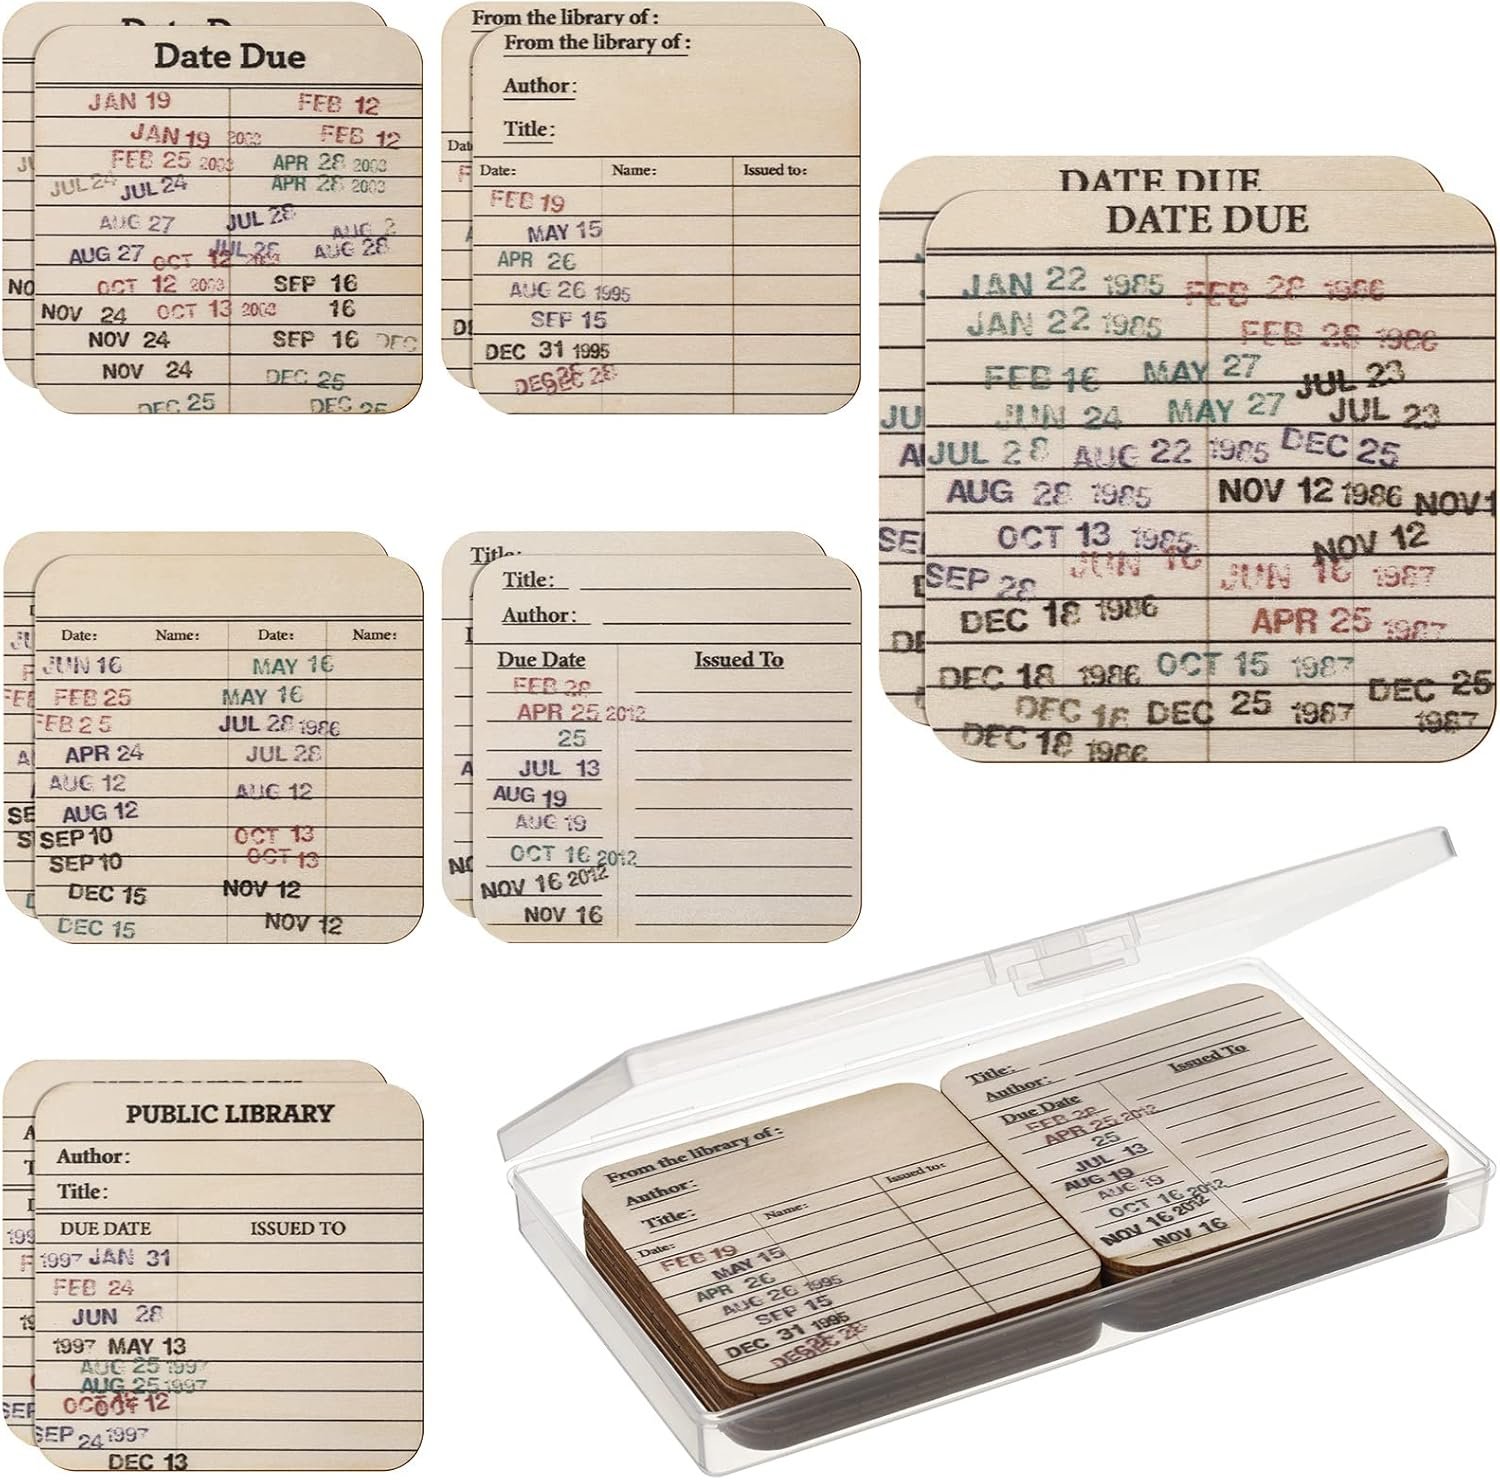 Date Due
JAN 19 FEB 12
JAN 19 2003 FEB 12
FEB 25 2003 APR 28 2003
JUL 24 JUL 24 APR 28 2003
AUG 27 JUL 28 AUG 2
AUG 27 JUL 28 AUG 28
OCT 12 2003
OCT 12 2003 SEP 16
NOV 24 OCT 13 2003 16
NOV 24 SEP 16 DEC
NOV 24 DEC 25
DEC 25 DEC 25
NO
From the library of :
From the library of :
Author:
Title:
Date: Name: Issued to:
FEB 19
MAY 15
APR 26
AUG 26 1995
SEP 15
DEC 31 1995
DEC 28
DATE DUE
DATE DUE
JAN 22 1985 FEB 28 1986
JAN 22 1985 FEB 28 1986
FEB 16 MAY 27 JUL 23
JUN 24 MAY 27 JUL 23
JUL 28 AUG 22 1985 DEC 25
AUG 28 1985 NOV 12 1986 NOV 1
OCT 13 1985 NOV 12
JUN 16 JUN 16 1987
SEP 28
DEC 18 1986 APR 25 1987
DEC 18 1986 OCT 15 1987 DEC 25
DEC 18 DEC 25 1987 1987
DEC 18 1986
Date: Name: Date: Name:
JUN 16 MAY 16
FEB 25 MAY 16
FEB 25 JUL 28 1986
APR 24 JUL 28
AUG 12 AUG 12
AUG 12
SEP 10 OCT 13
SEP 10 OCT 13
DEC 15 NOV 12
DEC 15 NOV 12
Title:
Title:
Author:
Due Date Issued To
FEB 28
APR 25 2012
25
JUL 13
AUG 19
AUG 19
OCT 16 2012
NOV 16 2012
NOV 16
PUBLIC LIBRARY
Author:
Title:
DUE DATE ISSUED TO
1997 JAN 31
FEB 24
JUN 28
1997 MAY 13
AUG 25 1997
AUG 25 1997
OCT 12
SEP 24 1997
DEC 13
From the library of :
Author:
Title:
Date: Name: Issued to:
FEB 19
MAY 15
APR 26
AUG 26 1995
SEP 15
DEC 31 1995
DEC 28
Title:
Author:
Due Date Issued To
FEB 28
APR 25 2012
25
JUL 13
AUG 19
AUG 19
OCT 16 2012
NOV 16 2012
NOV 16